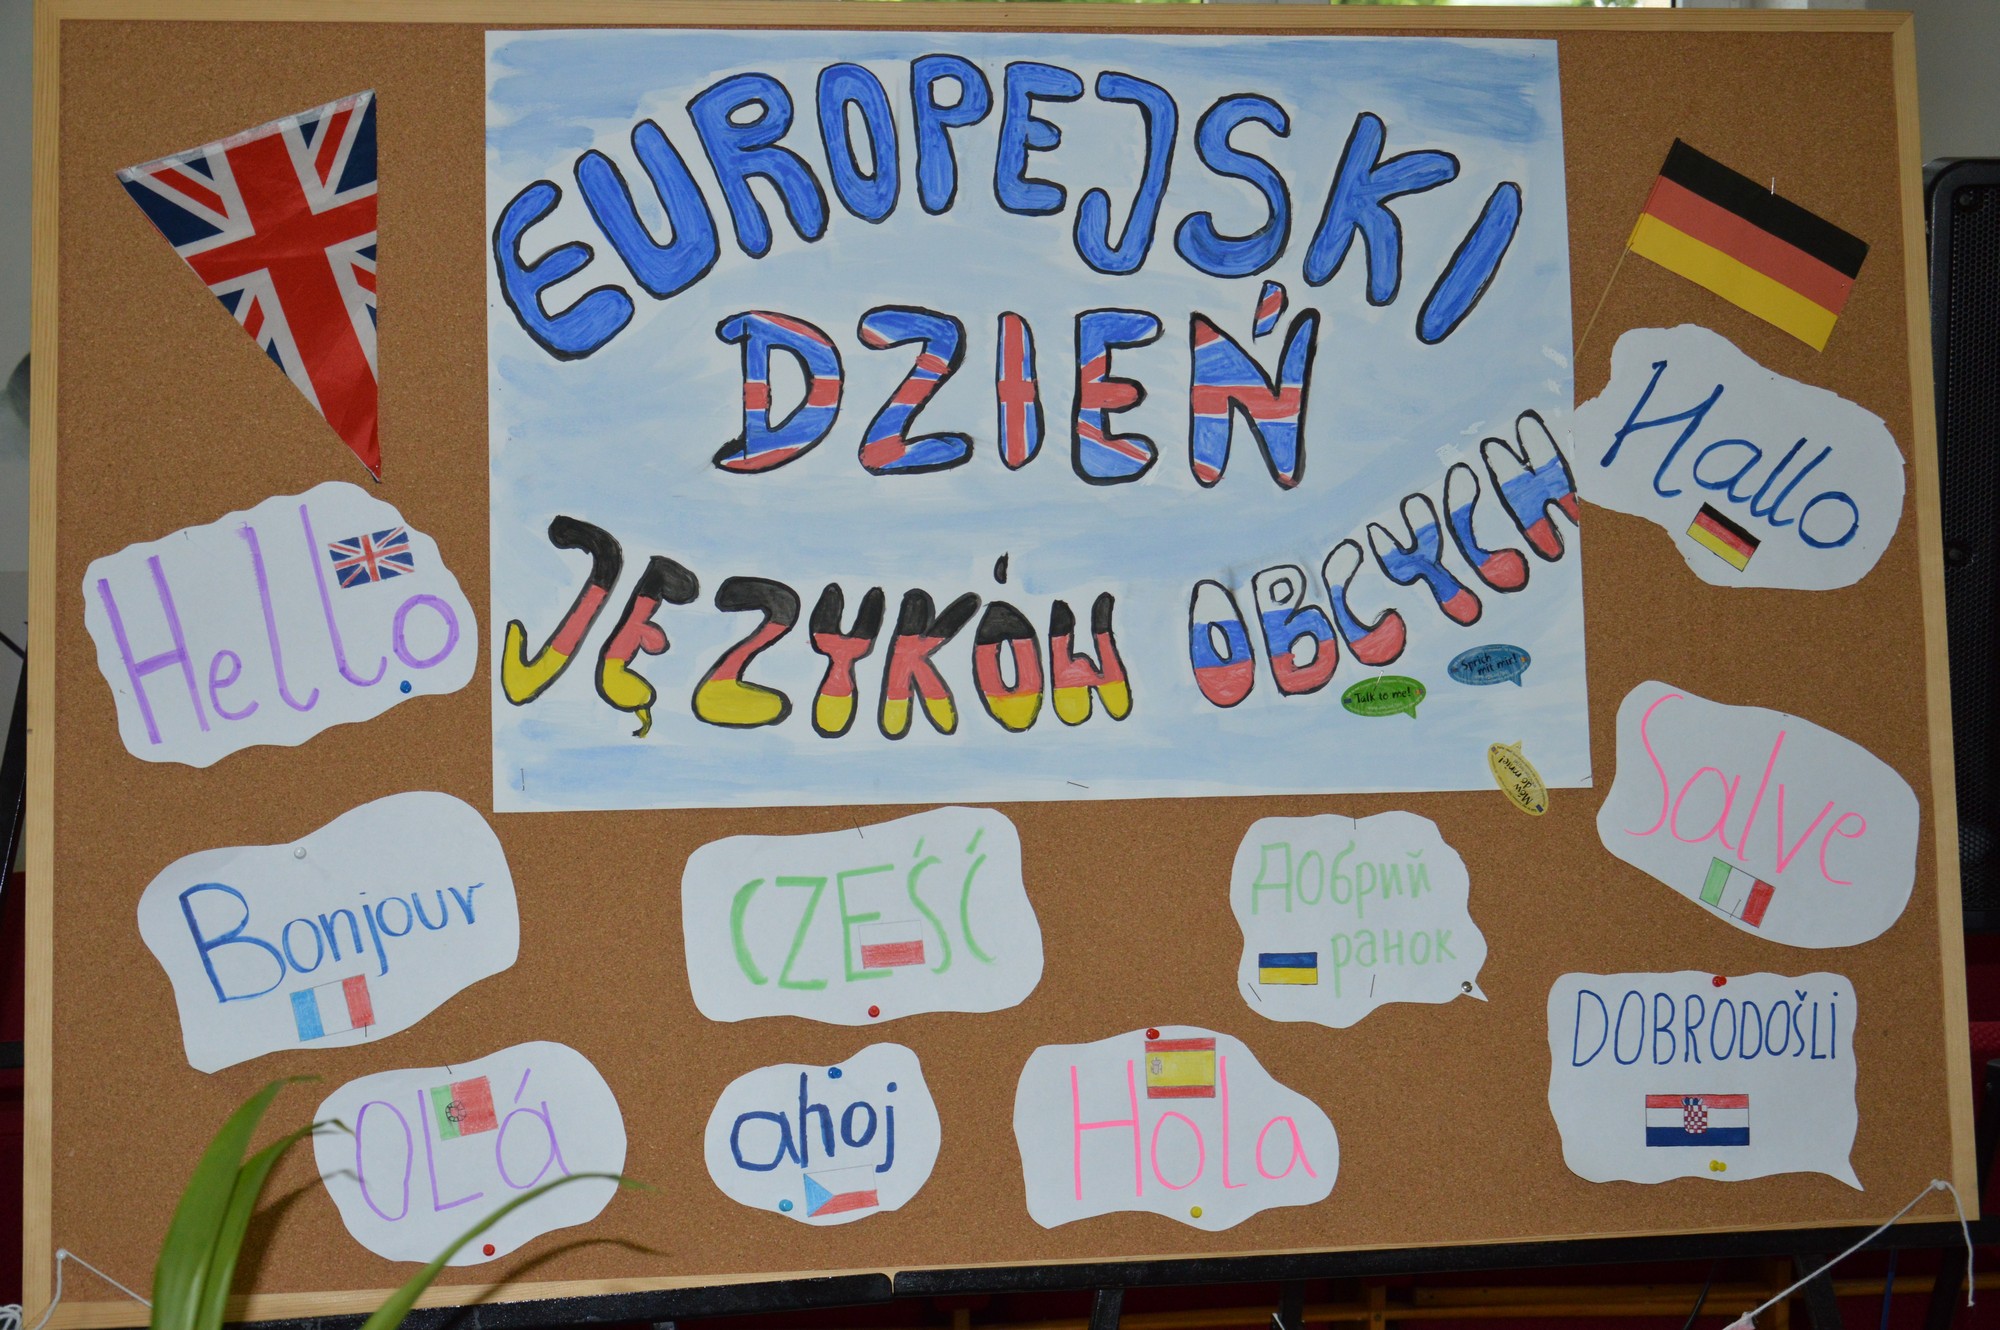 EUROPEJSKI
DZIEŃ
JĘZYKÓW OBCYCH
Sprich
mit mir!
Talk to me!
Mów
do mnie!
Hello
Hallo
Salve
Bonjour
CZEŚĆ
Добрий
ранок
DOBRODOŠLI
OLá
ahoj
Hola